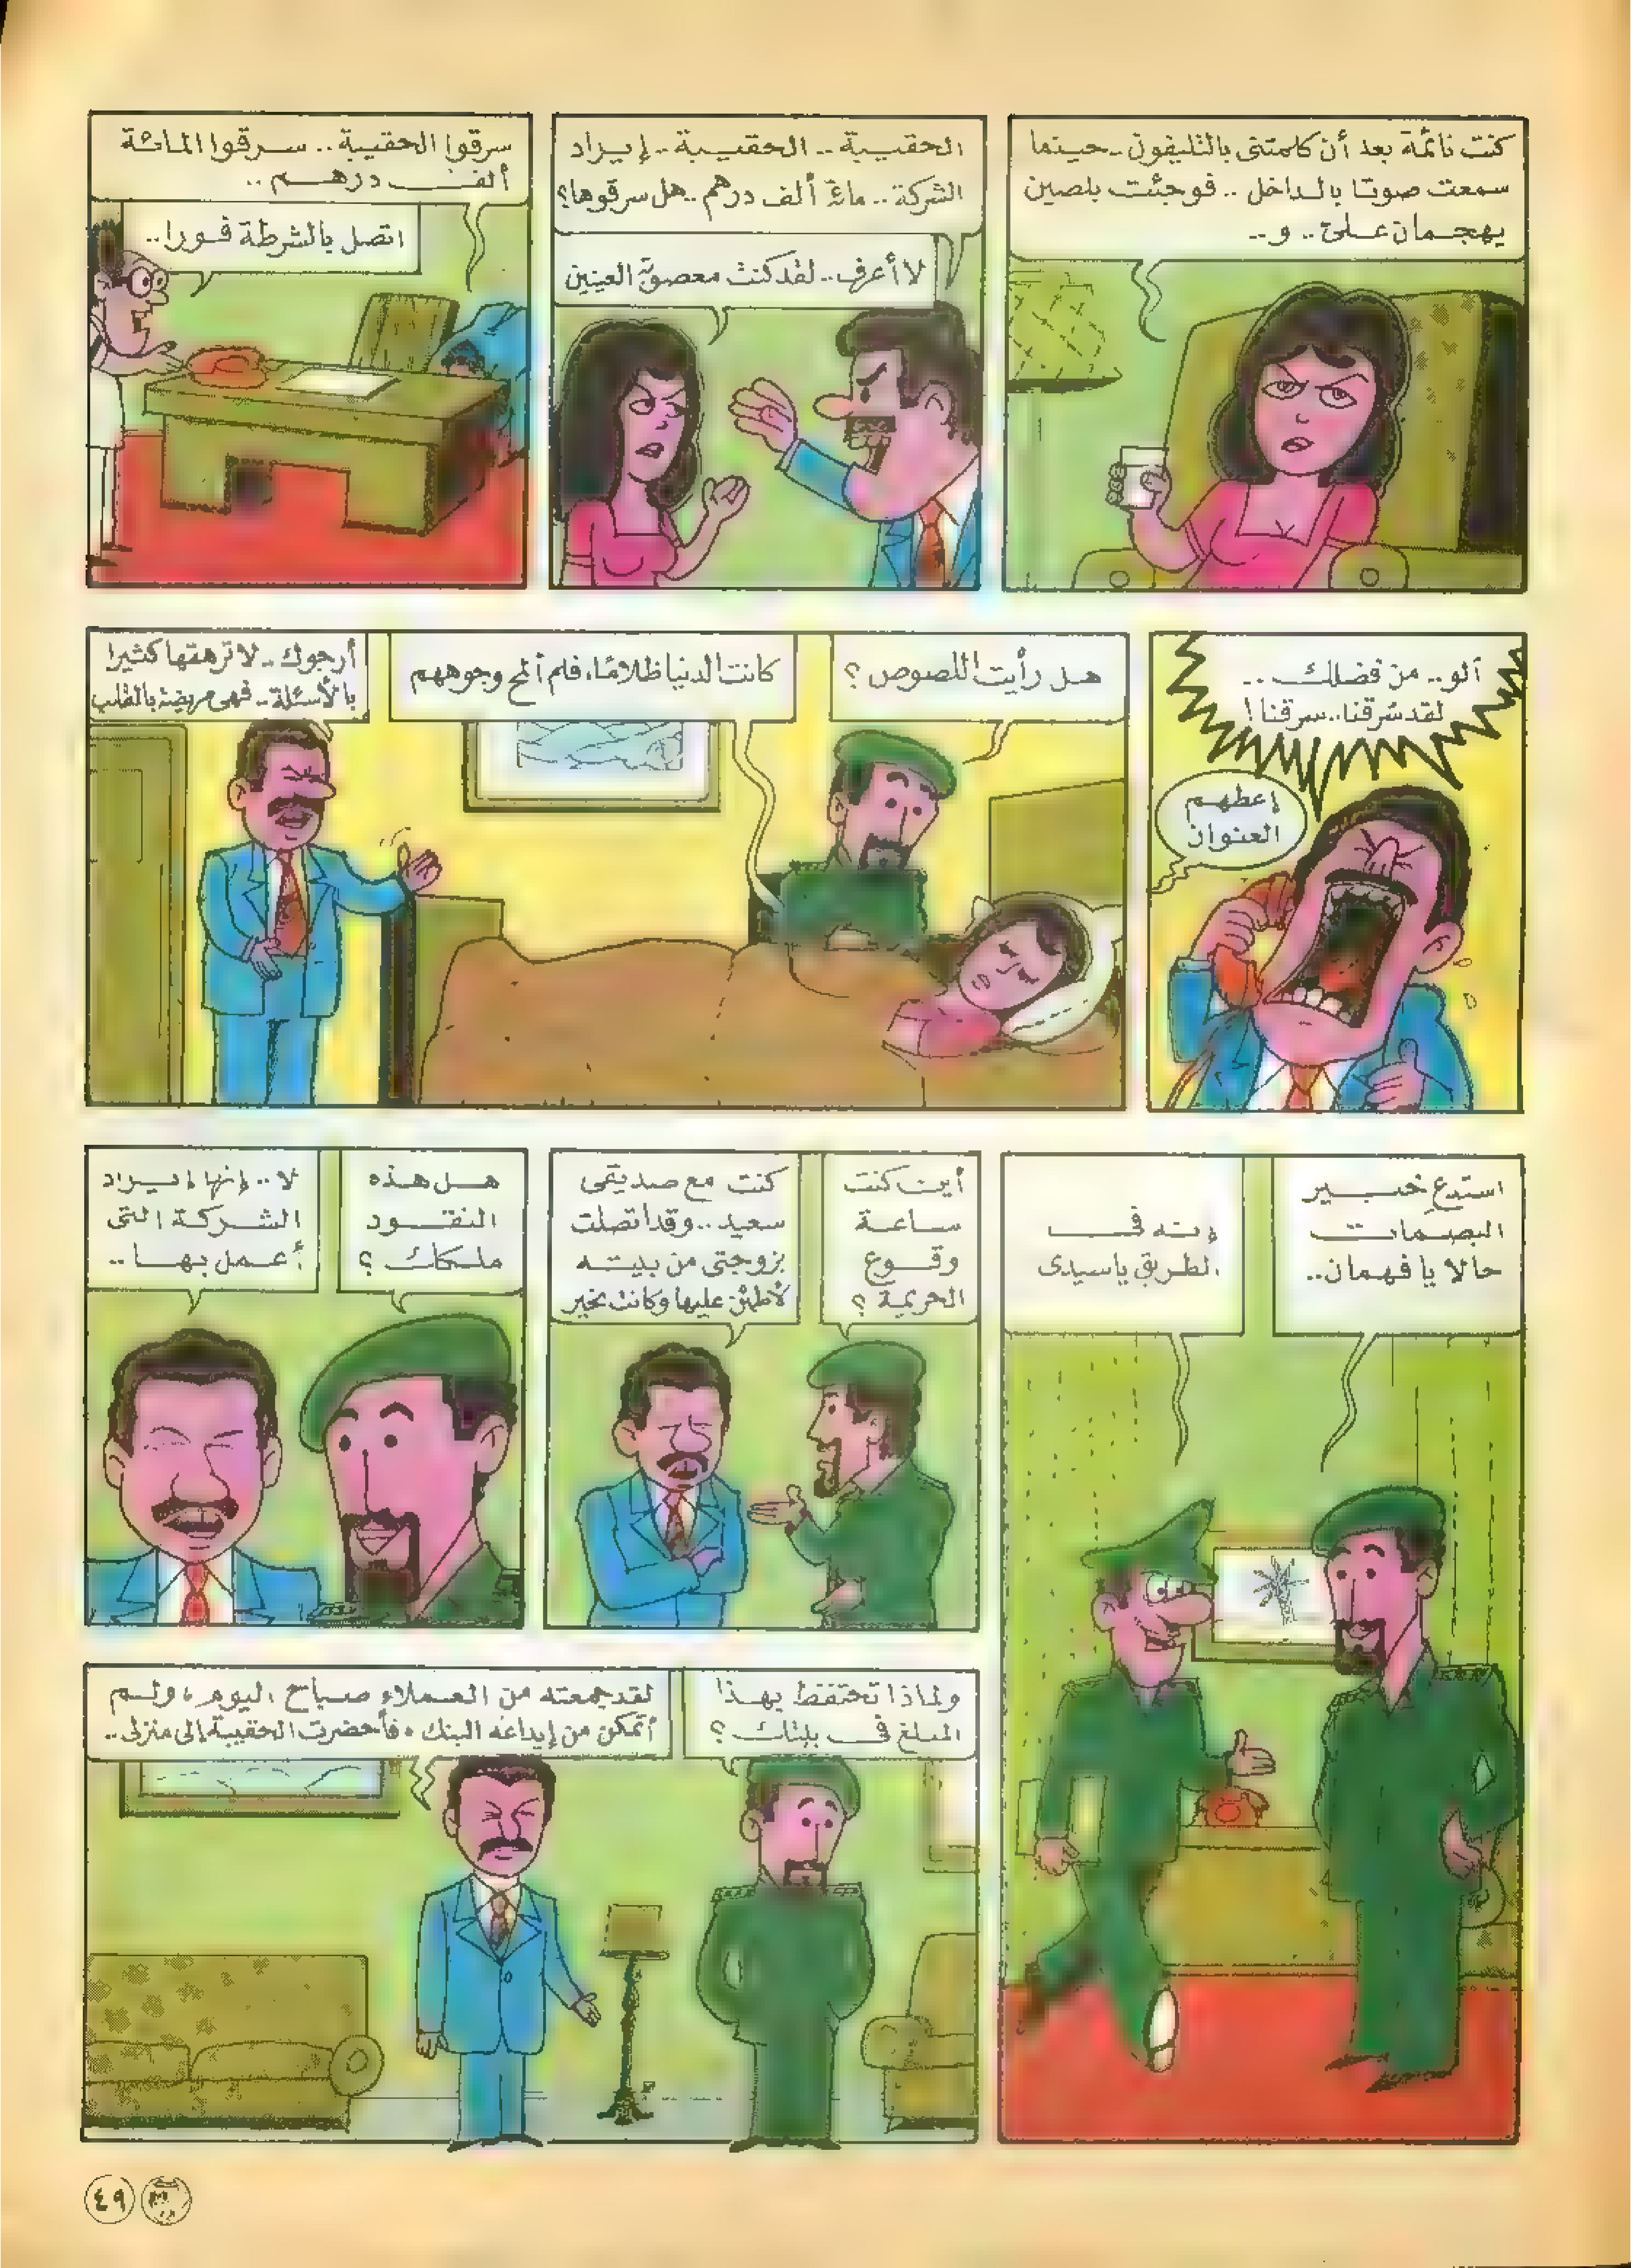 كنت نائمة بعد أن كلمتنى بالتليفون .. حينما
سمعت صوتا بالداخل .. فوجئت بلصين
يهجمان على .. و ..
الحقيبة .. الحقيبة .. إيراد
الشركة .. مائة ألف درهم .. هل سرقوها؟
لا أعرف .. لقد كنت معصوبة العينين
سرقوا الحقيبة .. سرقوا المائة
ألف درهم ..
اتصل بالشرطة فورا ..
ألو .. من فضلك ..
لقد سُرقنا .. سرقنا !
إعطهم
العنوان
هل رأيت اللصوص ؟
كانت الدنيا ظلامًا، فلم ألمح وجوههم
أرجوك .. لا ترهقها كثيرا
بالأسئلة .. فهى مريضة بالقلب
استدعِ خبير
البصمات
حالا يا فهمان ..
إنه فى
الطريق يا سيدى
أين كنت
ساعة
وقوع
الجريمة ؟
كنت مع صديقى
سعيد .. وقد اتصلت
بزوجتى من بيته
لأطمئن عليها وكانت بخير
هل هذه
النقود
ملكك ؟
لا .. إنها إيراد
الشركة التى
أعمل بها ..
ولماذا تحتفظ بهذا
المبلغ فى بيتك ؟
لقد جمعته من العملاء صباح اليوم ، ولم
أتمكن من إيداعه البنك ، فأحضرت الحقيبة إلى منزلى ..
٤٩